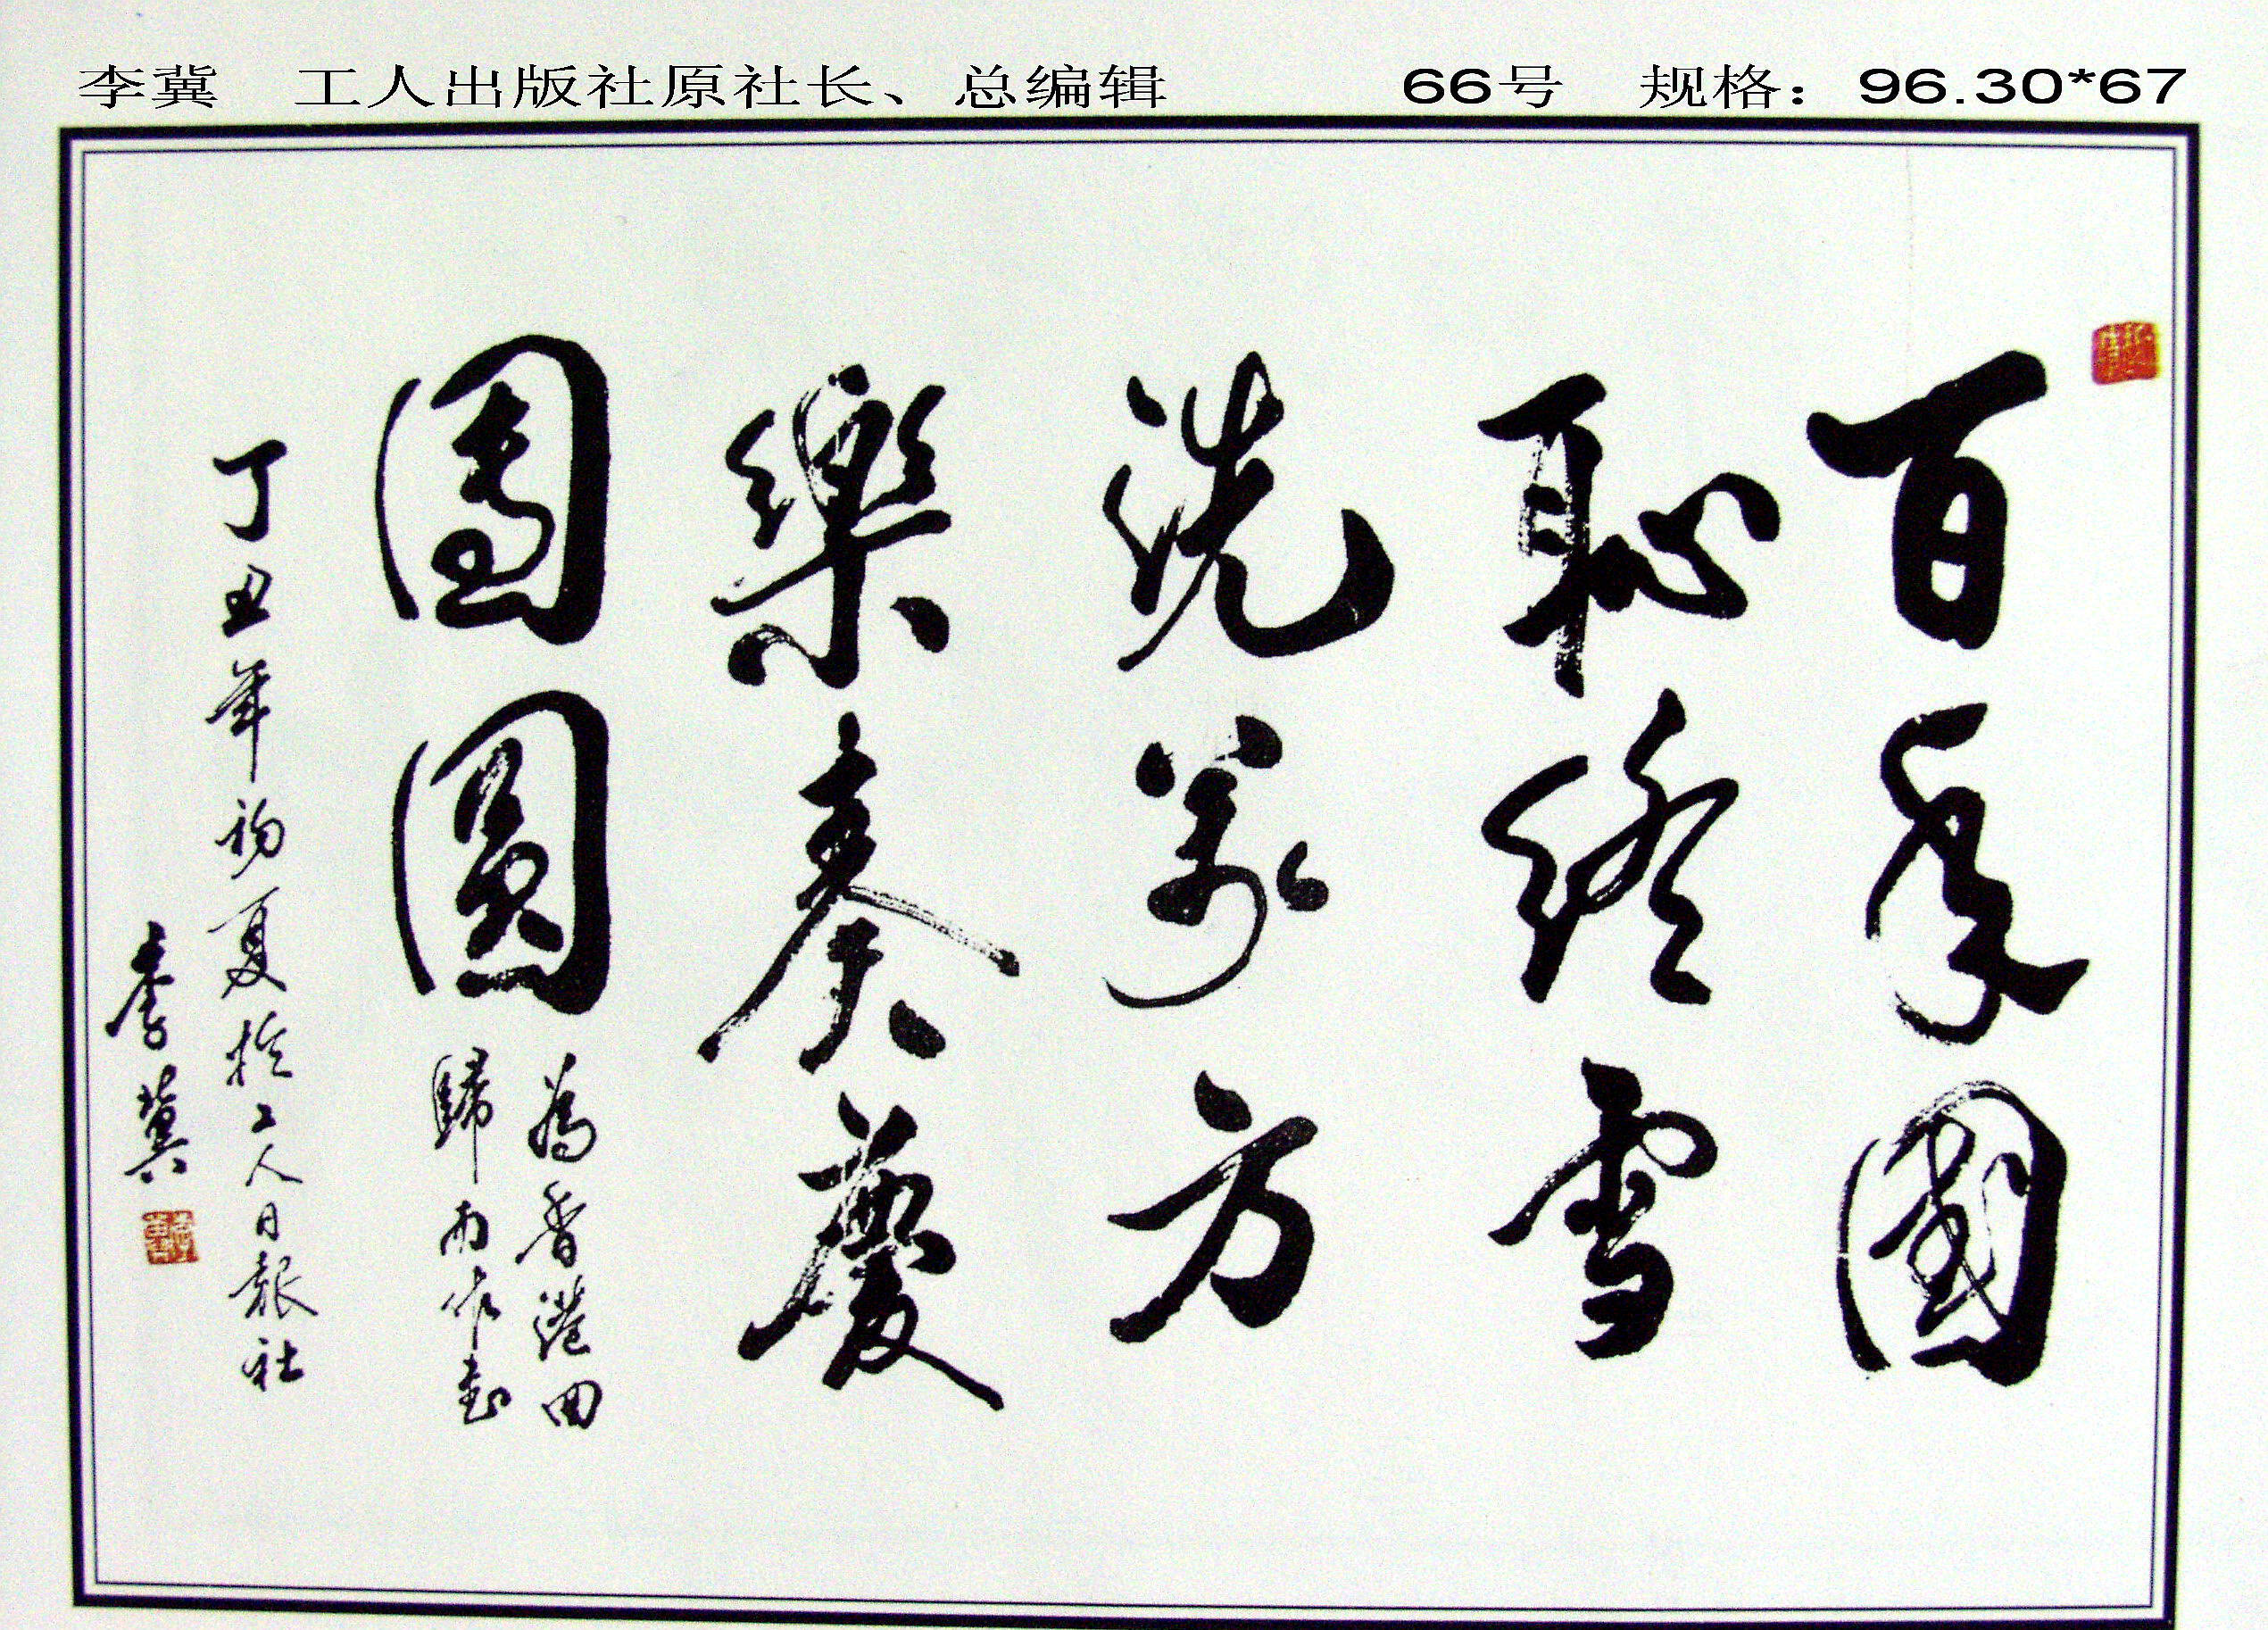 李冀 工人出版社原社长、总编辑 66号 规格：96.30*67
百年國
恥終雪
洗萬方
樂奏慶
團圓
為香港回
歸而作書
丁丑年初夏於工人日報社
李冀